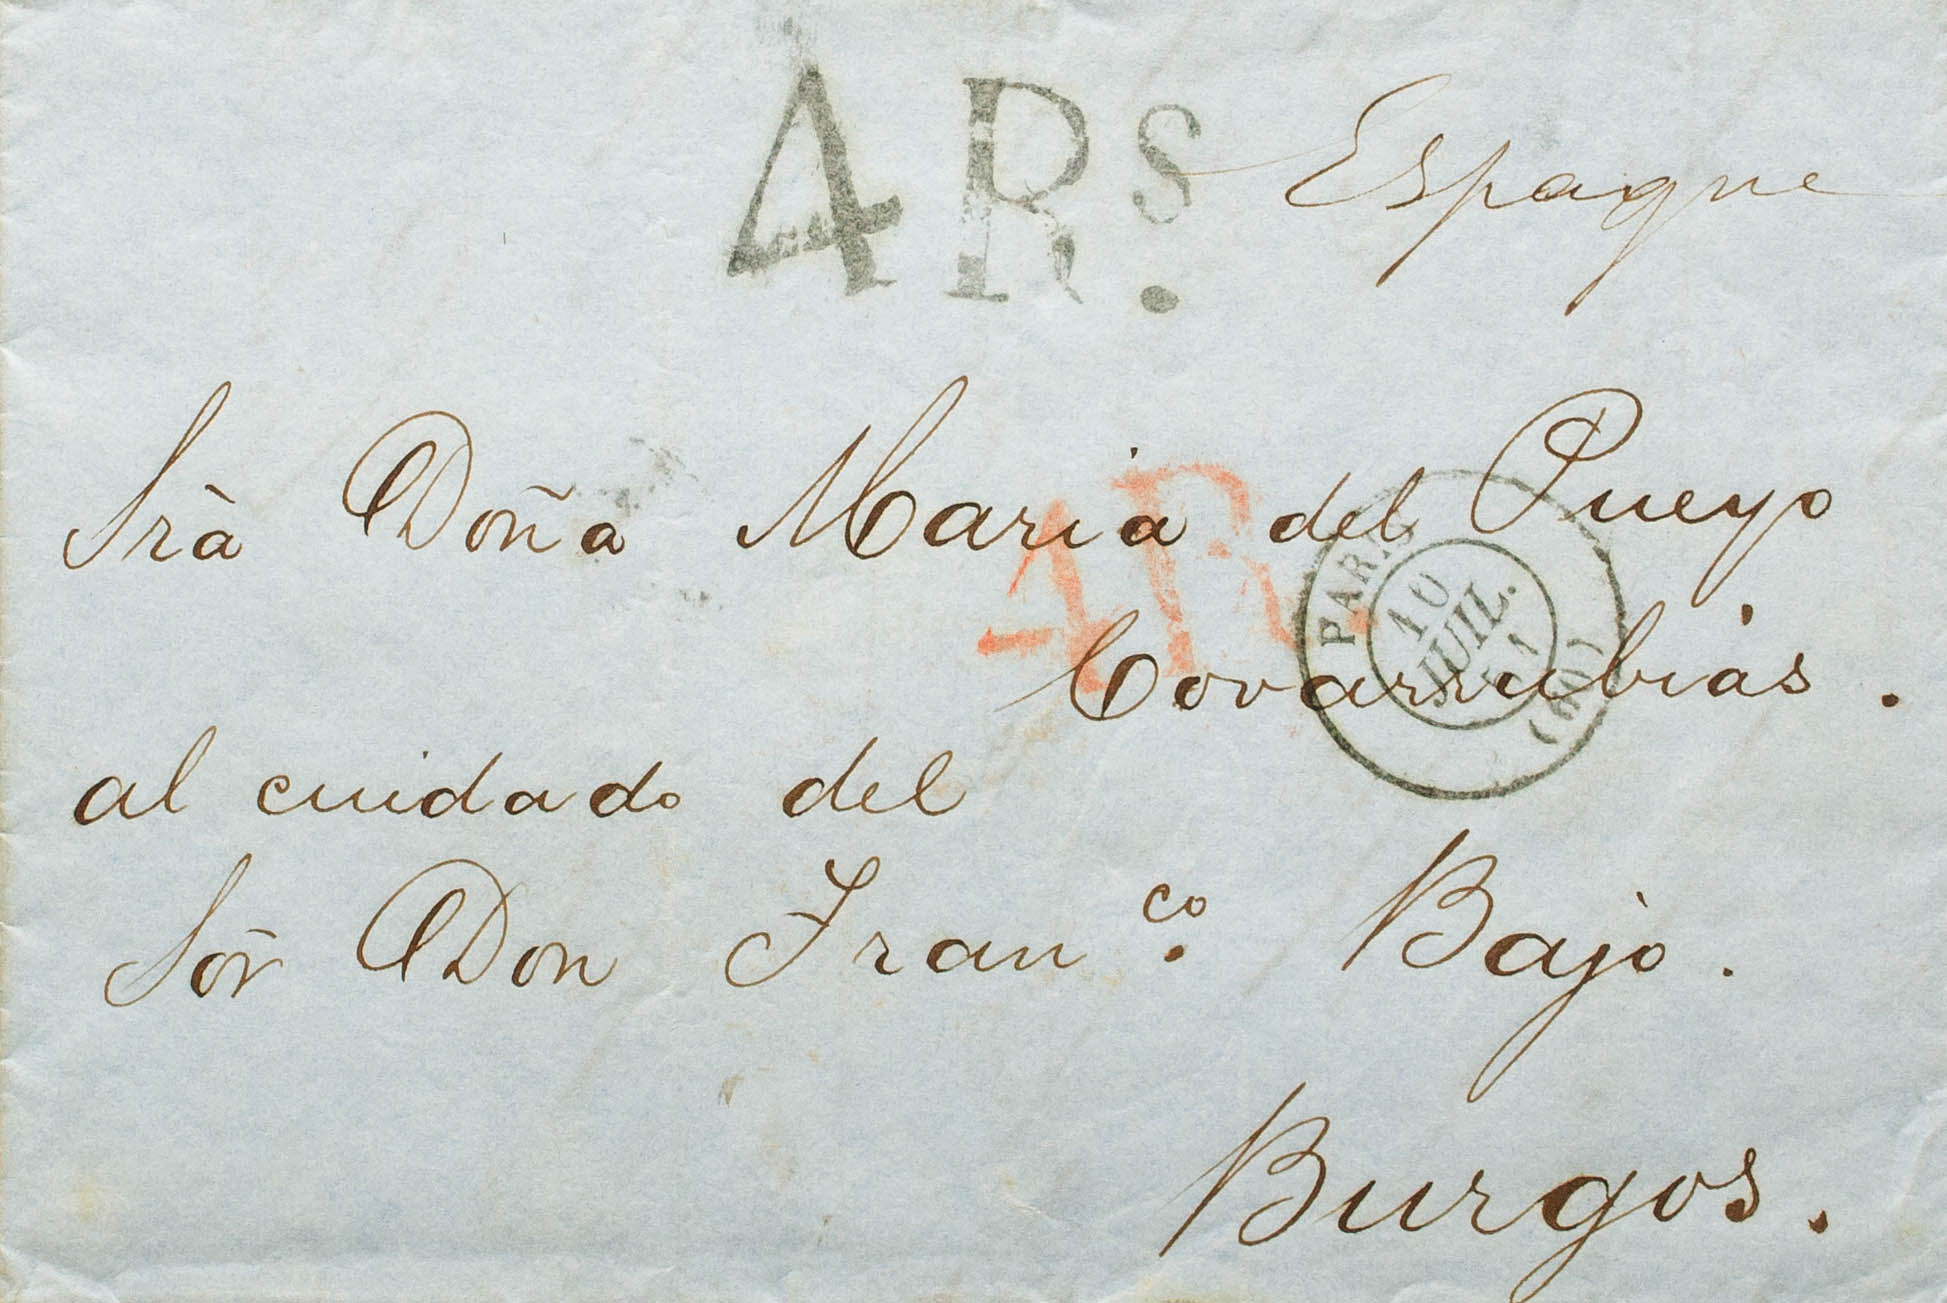 4 Rs.
Espagne
Srà Doña Maria del Pueyo
4R.
PARIS
10
JUIL.
51
(60)
Covarrubias.
al cuidado del
Sor̃ Don Franco. Bajo.
Burgos.